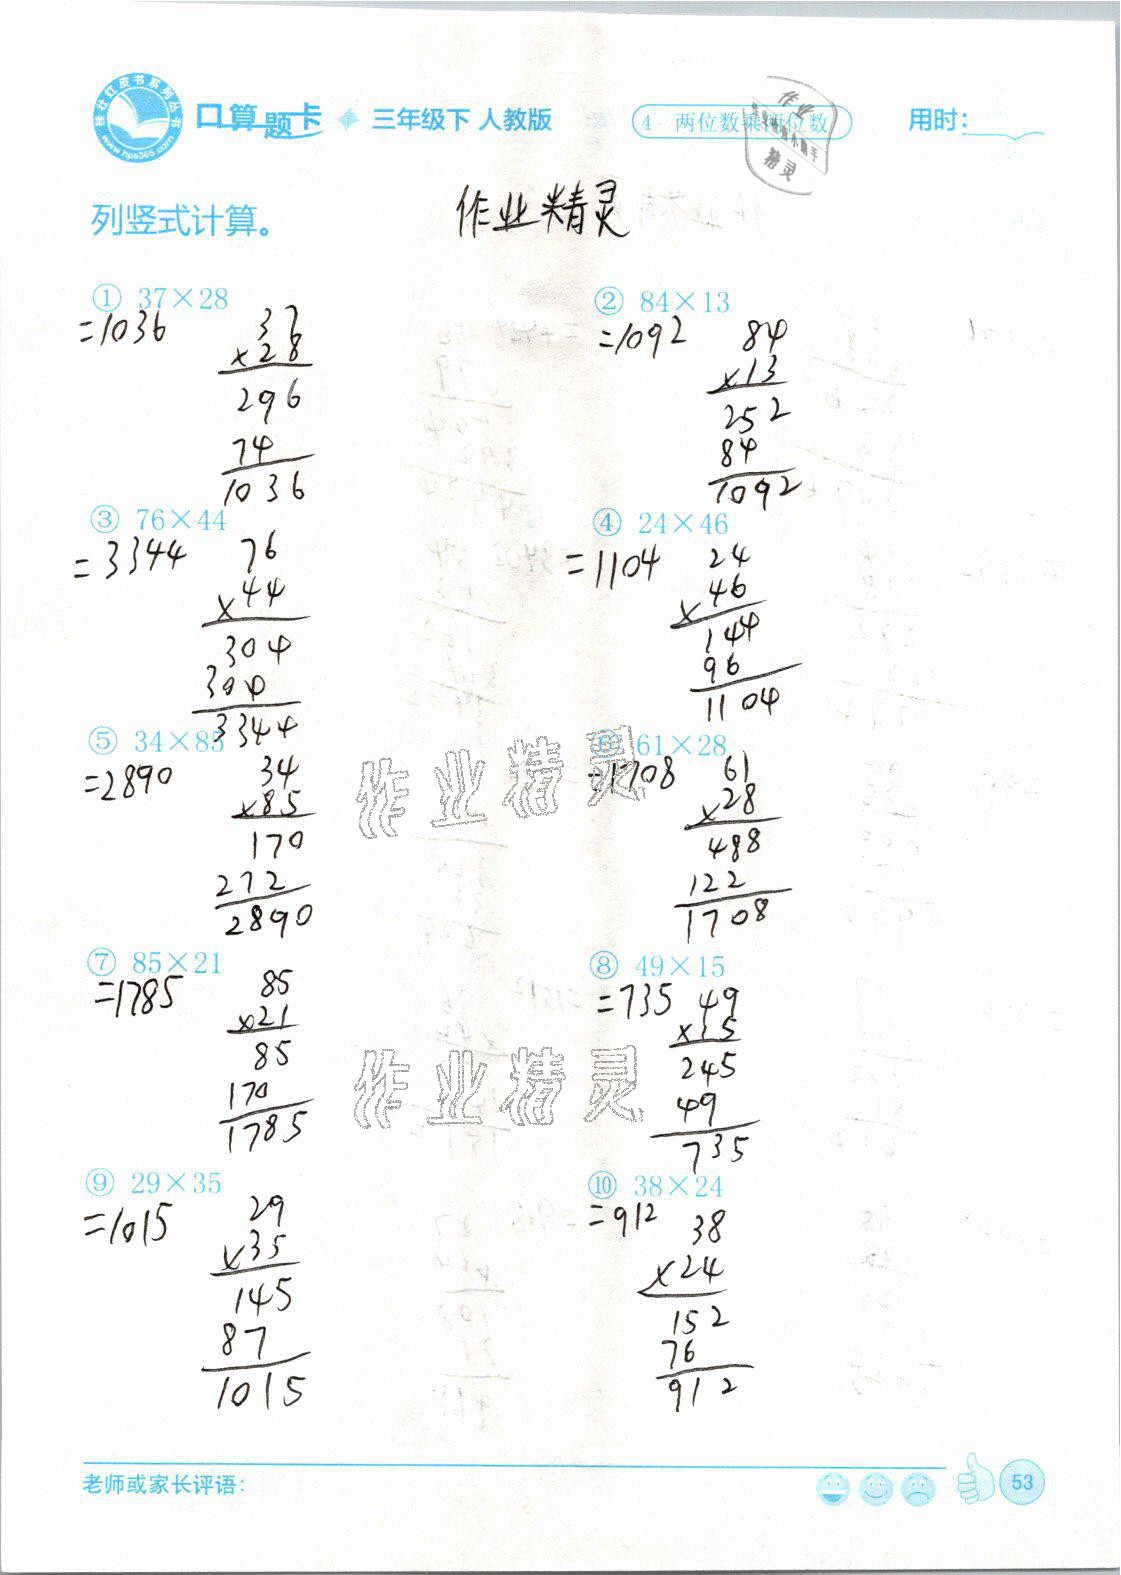 桂壮红皮书系列丛书
www.hps365.com
口算题卡 三年级下 人教版
4 两位数乘两位数
用时:
作业
精灵
列竖式计算。
作业精灵
① 37×28
=1036
37
×28
296
74
1036
② 84×13
=1092
84
×13
252
84
1092
③ 76×44
=3344
76
×44
304
304
3344
④ 24×46
=1104
24
46
×
144
96
1104
⑤ 34×85
=2890
34
×85
170
272
2890
⑥ 61×28
=1708
61
×28
488
122
1708
作业精灵
⑦ 85×21
=1785
85
×21
85
170
1785
⑧ 49×15
=735
49
×15
245
49
735
作业精灵
⑨ 29×35
=1015
29
×35
145
87
1015
⑩ 38×24
=912
38
×24
152
76
912
老师或家长评语:
53